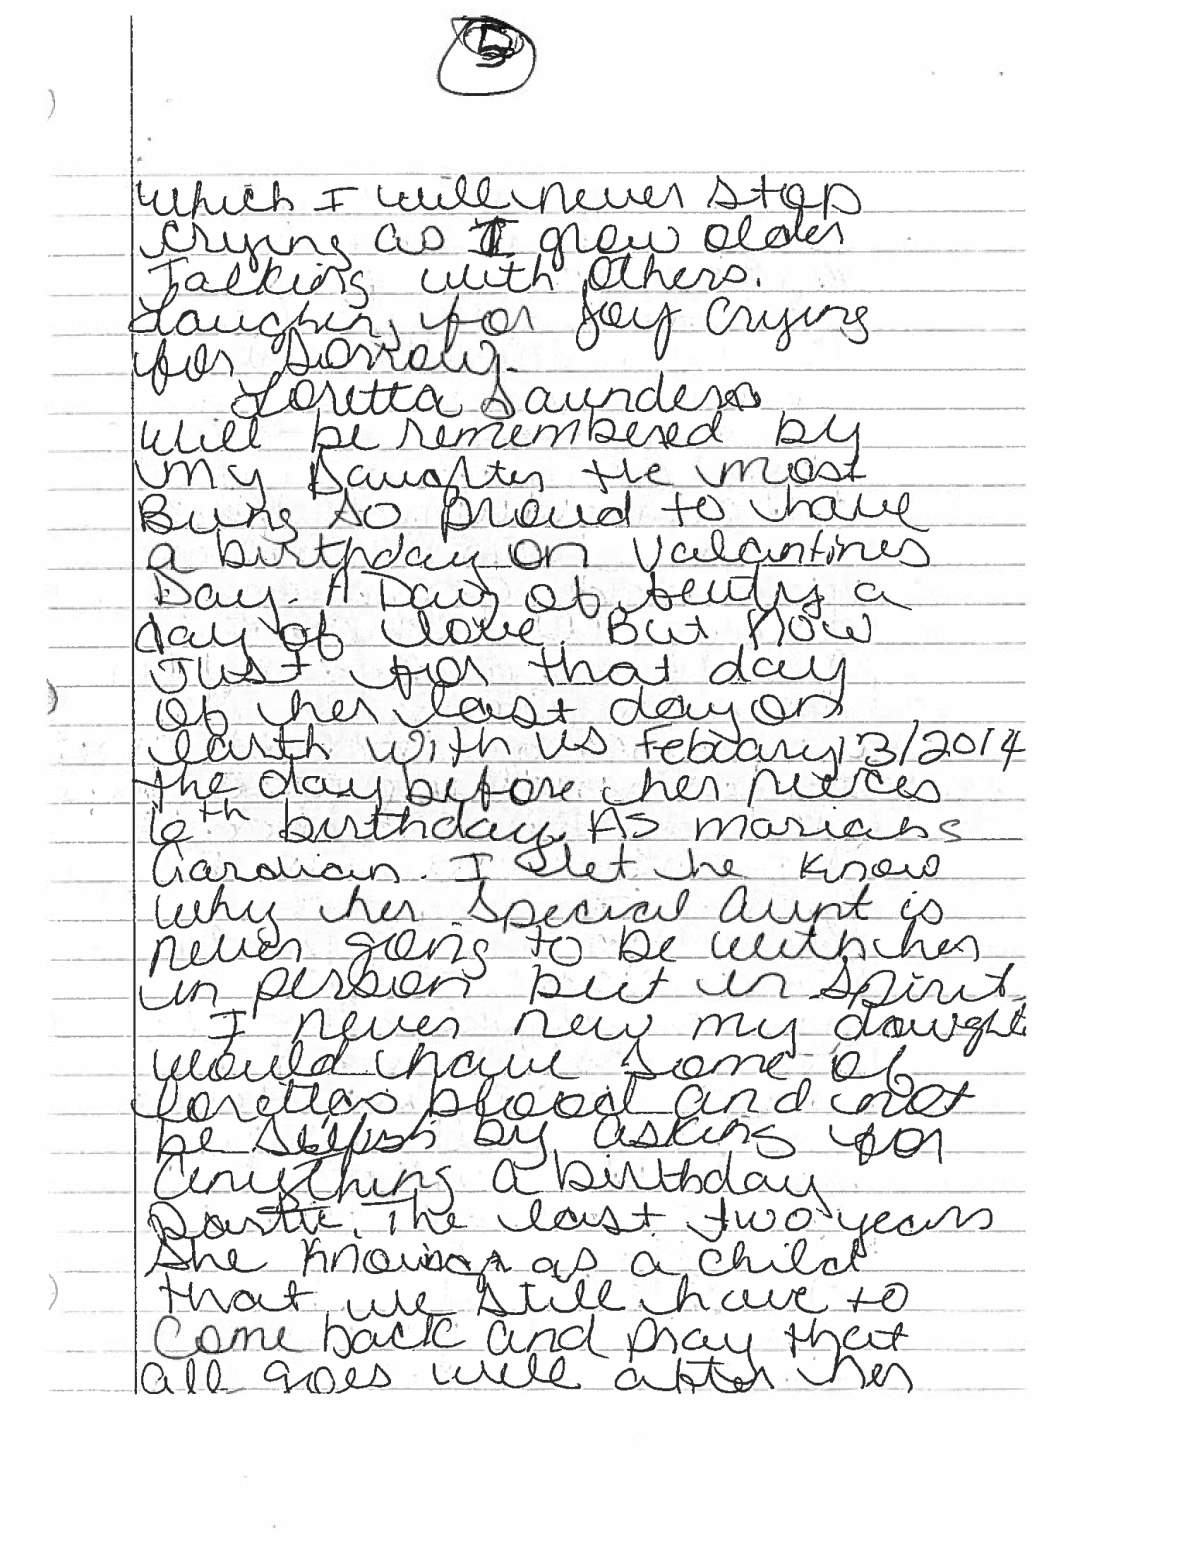 5
which I will never stop
crying as I grow older
Talking with others.
Laughing for joy crying
for Sorrow.
Loretta Saunders
Will be remembered by
my Daughter the most
Being so proud to have
a birthday on Valantines
Day. A Day of beuty a
day of love. But now
Just for that day
of her last day on
earth with us Febuary 13/2014
the day before her nieces
6th birthday. As mariahs
Gardian. I let he know
why her special Aunt is
never going to be with her
in person but in spirit.
I never new my dawght
would have some of
Lorettas blood and not
be by asking for
anything a birthday
. The last two years
She as a child
that we still have to
Come back and pray that
all goes well after her